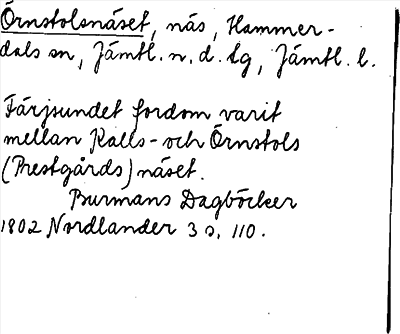 Örnstolsnäset, näs, Hammer-
dals sn, Jämtl. n. d. lg, Jämtl. l.
Färjsundet fordom varit
mellan Kalls- och Örnstols
(Prestgårds) näset.
Burmans Dagböcker
1802 Nordlander 3 s. 110.